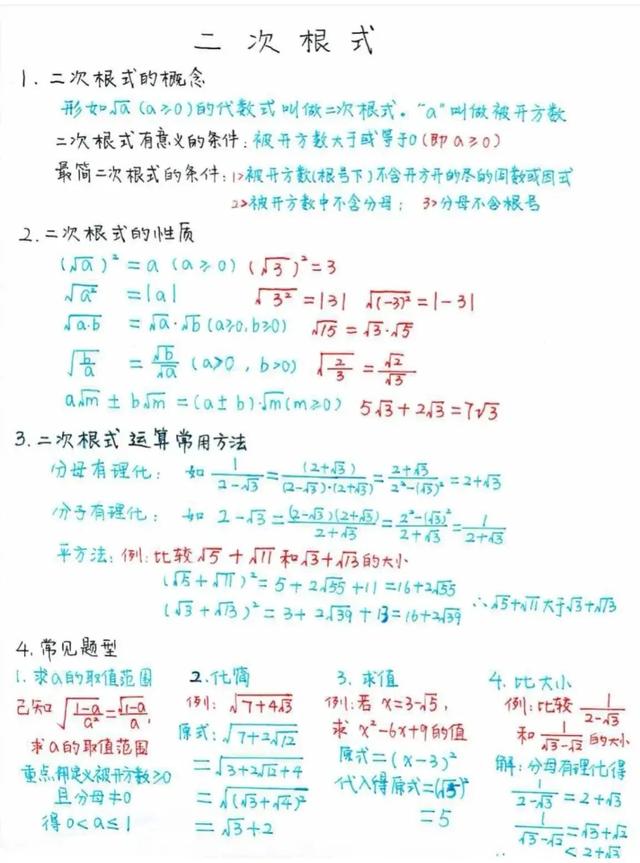 二次根式
1. 二次根式的概念
形如√a (a≥0)的代数式叫做二次根式。"a"叫做被开方数
二次根式有意义的条件:被开方数大于或等于0(即a≥0)
最简二次根式的条件: 1>被开方数(根号下)不含开方开的尽的因数或因式
2>被开方数中不含分母; 3>分母不含根号
2. 二次根式的性质
(√a)² = a (a≥0) (√3)² = 3
√a² = |a| √3² = |3| √(-3)² = |-3|
√a·b = √a·√b (a≥0,b≥0) √15 = √3·√5
√(b/a) = √b/√a (a>0, b>0) √(2/3) = √2/√3
a√m ± b√m = (a±b)·√m (m≥0) 5√3+2√3=7√3
3. 二次根式运算常用方法
分母有理化: 如 1/(2-√3) = (2+√3)/((2-√3)·(2+√3)) = (2+√3)/(2²-(√3)²) = 2+√3
分子有理化: 如 2-√3 = (2-√3)(2+√3)/(2+√3) = (2²-(√3)²)/(2+√3) = 1/(2+√3)
平方法: 例:比较√5+√11和√3+√13的大小
(√5+√11)² = 5+2√55+11 = 16+2√55
(√3+√13)² = 3+2√39+13 = 16+2√39 ∴√5+√11大于√3+√13
4. 常见题型
1. 求a的取值范围
已知 √((1-a)/a²) = √(1-a)/a,
求a的取值范围
重点:和定义被开方数≥0
且分母≠0
得 0<a≤1
2. 化简
例: √(7+4√3)
原式: √(7+2√12)
= √(3+2√12+4)
= √((√3+√4)²)
= √3+2
3. 求值
例:若 x=3-√5,
求 x²-6x+9的值
原式=(x-3)²
代入得原式=(√5)²
= 5
4. 比大小
例:比较 1/(2-√3)
和 1/(√3-√2) 的大小
解:分母有理化得
1/(2-√3) = 2+√3
1/(√3-√2) = √3+√2
< 2+√3